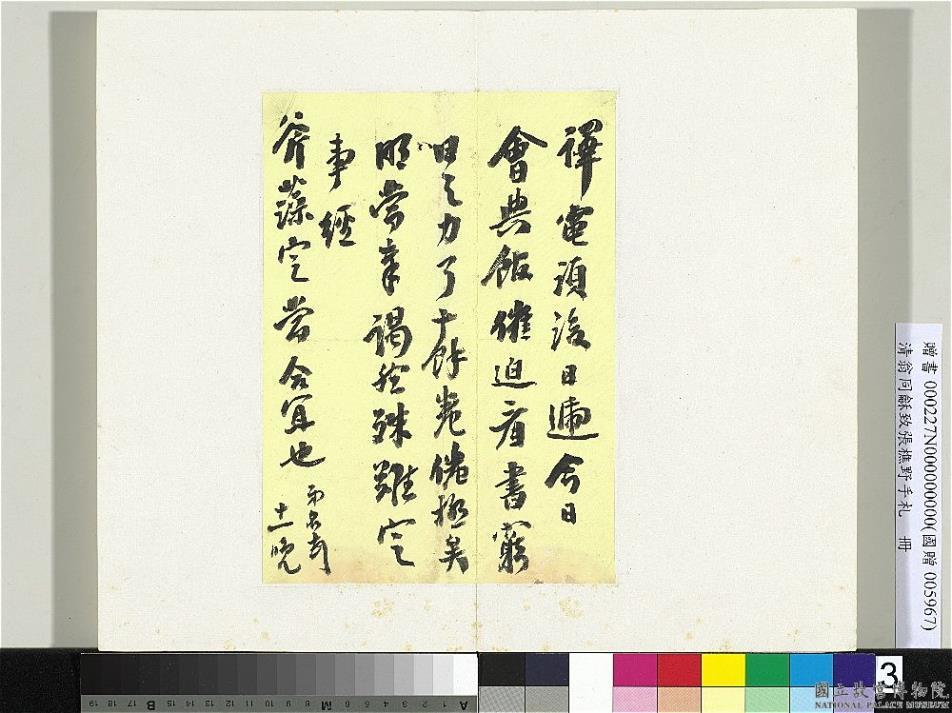 禪電須後日遞今日
會典館催迫看書窮
日之力了十餘卷倦極矣
明當奉謁然殊難定
事經
斧藻定當合宜也
弟名頓
十一晚
贈書 000227N000000000(國贈 005967)
清翁同龢致張樵野手札 冊
3
國立故宮博物院
NATIONAL PALACE MUSEUM